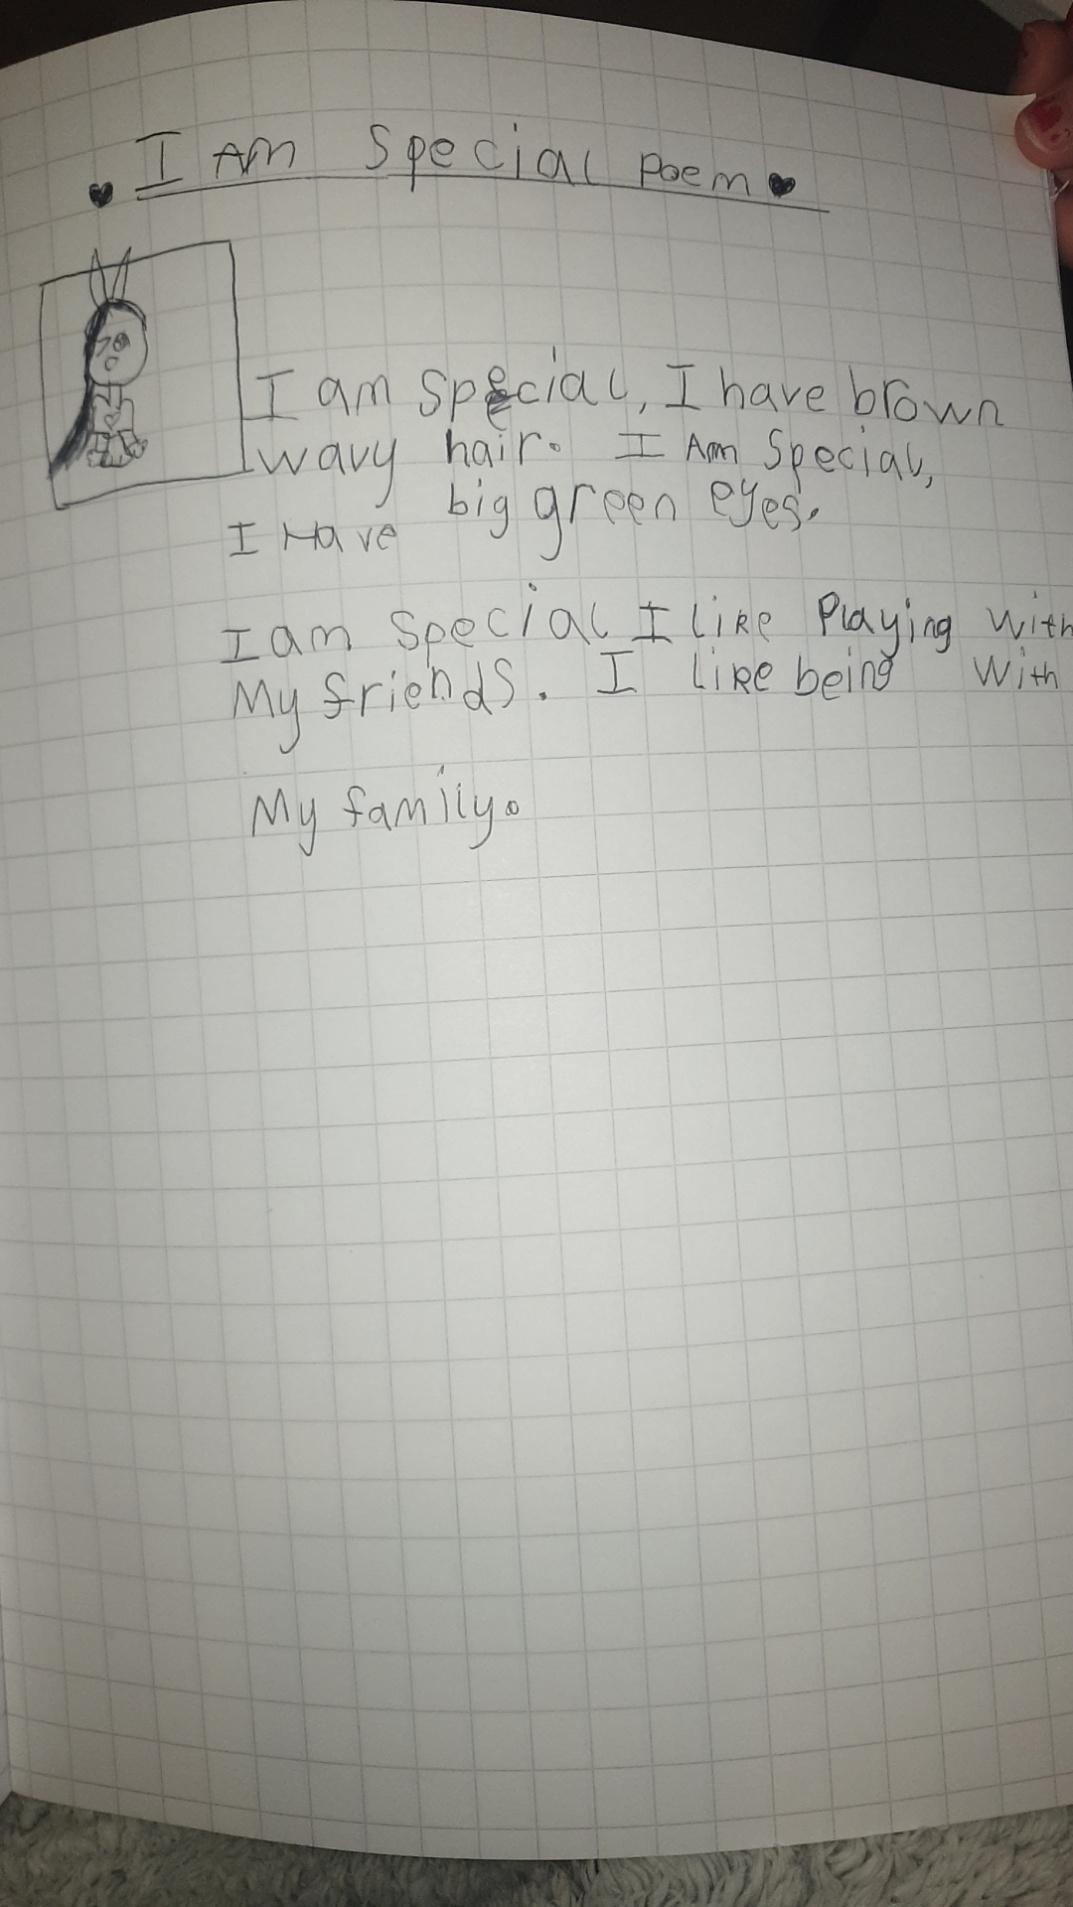 I AM Special Poem
I am special, I have brown
wavy hair. I Am Special,
I Have big green eyes.
I am Special I like Playing with
My friends. I like being with
My family.